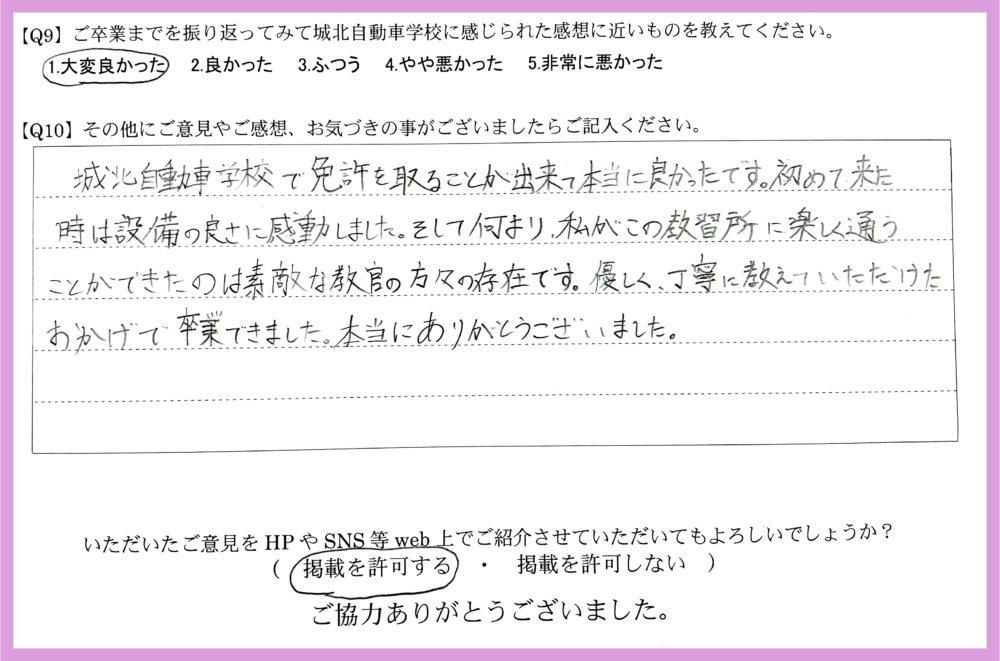 【Q9】ご卒業までを振り返ってみて城北自動車学校に感じられた感想に近いものを教えてください。
1.大変良かった　2.良かった　3.ふつう　4.やや悪かった　5.非常に悪かった
【Q10】その他にご意見やご感想、お気づきの事がございましたらご記入ください。
城北自動車学校で免許を取ることが出来て本当に良かったです。初めて来た
時は設備の良さに感動しました。そして何より、私がこの教習所に楽しく通う
ことができたのは素敵な教官の方々の存在です。優しく、丁寧に教えていただけた
おかげで卒業できました。本当にありがとうございました。
いただいたご意見をHPやSNS等web上でご紹介させていただいてもよろしいでしょうか？
（　掲載を許可する　・　掲載を許可しない　）
ご協力ありがとうございました。